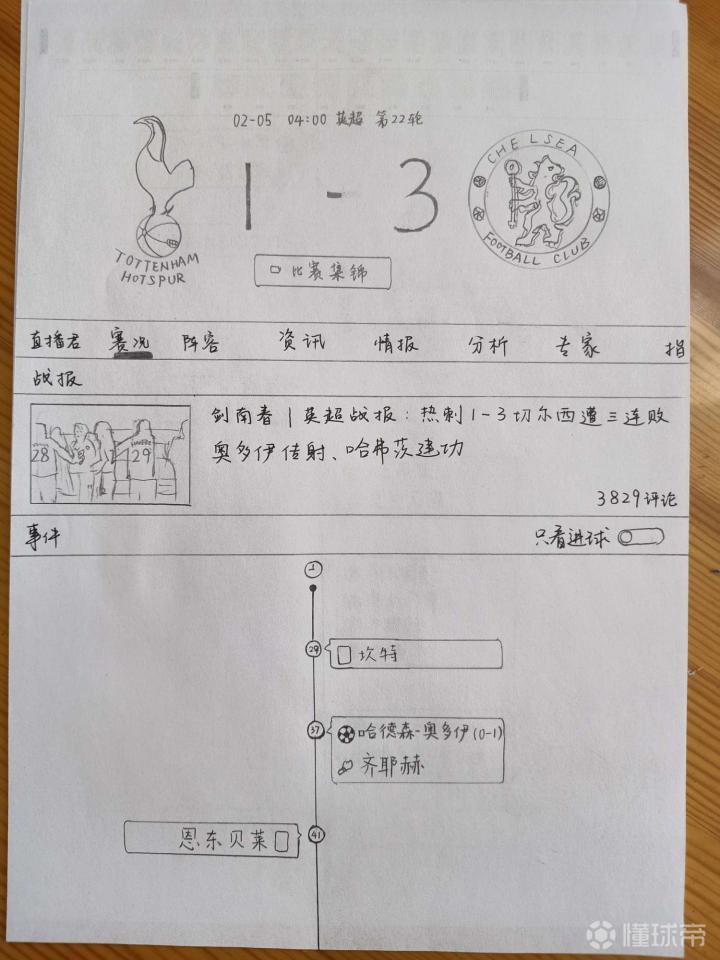 02-05 04:00 英超 第22轮
1 - 3
CHELSEA
FOOTBALL CLUB
TOTTENHAM
HOTSPUR
比赛集锦
直播君 赛况 阵容 资讯 情报 分析 专家 指
战报
剑南春|英超战报:热刺1-3切尔西遭三连败
奥多伊传射、哈弗茨建功
28 29
3829评论
事件 只看进球
29 坎特
37 哈德森-奥多伊(0-1)
齐耶赫
恩东贝莱 41
懂球帝